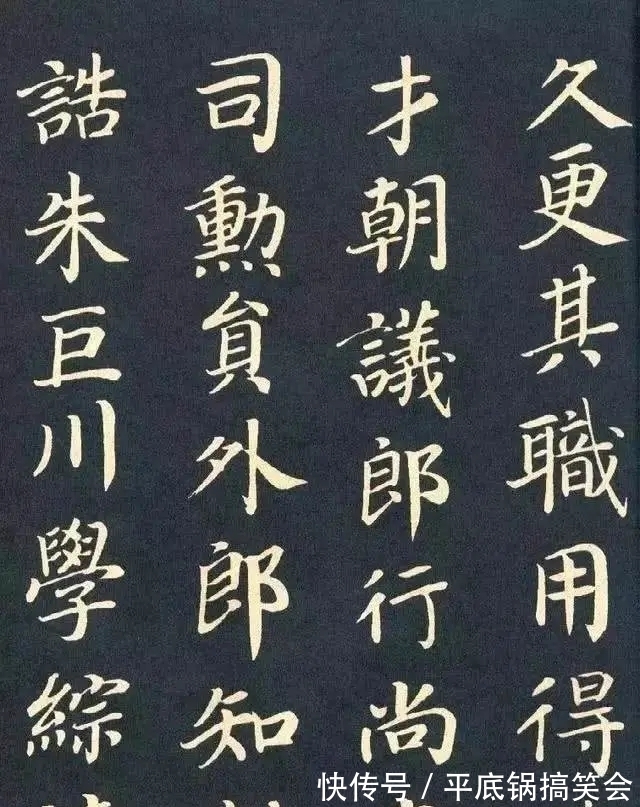 久更其職用得
才朝議郎行尚
司勳貟外郎知
誥朱巨川學綜
快传号/平底锅搞笑会